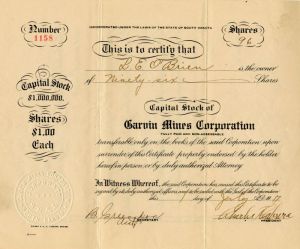 INCORPORATED UNDER THE LAWS OF THE STATE OF SOUTH DAKOTA
Number
1158
Shares
96
This is to certify that
L. E. O'Brien is the owner
of Ninety-six Shares
Capital Stock
$1,000,000.
Shares
$1.00
Each
Capital Stock of
Garvin Mines Corporation
FULLY PAID AND NON-ASSESSABLE
transferable only on the books of the said Corporation upon
surrender of this Certificate properly endorsed by the holder
hereof in person or by duly authorized Attorney
In Witness Whereof, the said Corporation has caused this Certificate to be
signed by its duly authorized officers and to be sealed with the Seal of the Corporation
this day of 19